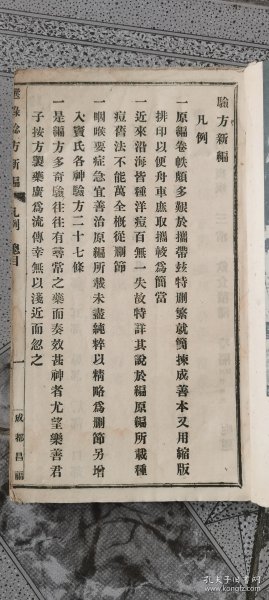 驗方新編
凡例
一原編卷帙頗多艱於攜帶茲特刪繁就簡揀成善本又用縮版
排印以便舟車庶取攜較為簡當
一近來沿海皆種洋痘百無一失故特詳其說於編原編所載種
痘舊法不能萬全概從刪節
一咽喉要症急宜善治原編所載未盡純粹以精略為刪節另增
入竇氏各神驗方二十七條
一是編方多奇驗往往有尋常之藥而奏效甚神者尤望樂善君
子按方製藥廣為流傳幸無以淺近而忽之
驗方新編
凡例
總目
一
成都昌福
孔夫子旧书网